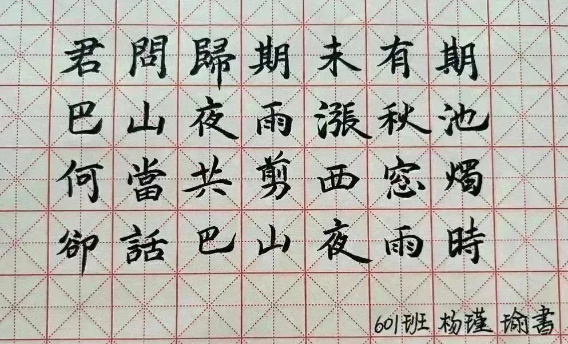 君問歸期未有期
巴山夜雨漲秋池
何當共剪西窓燭
卻話巴山夜雨時
601班 杨瑾瑜書